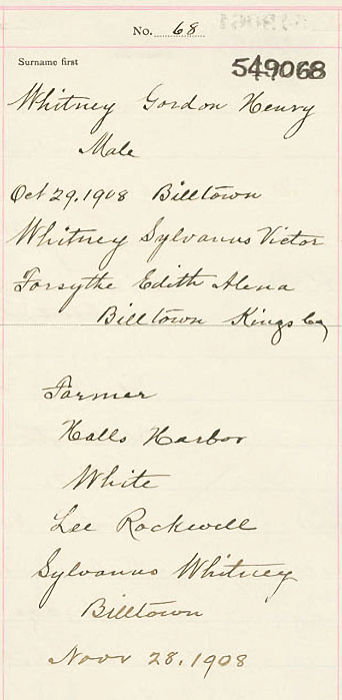 No. 68
Surname first
549068
Whitney Gordon Henry
Male
Oct 29, 1908 Billtown
Whitney Sylvanus Victor
Forsythe Edith Alena
Billtown Kings Co
Farmer
Halls Harbor
White
Lee Rockwell
Sylvanus Whitney
Billtown
Novr 28, 1908